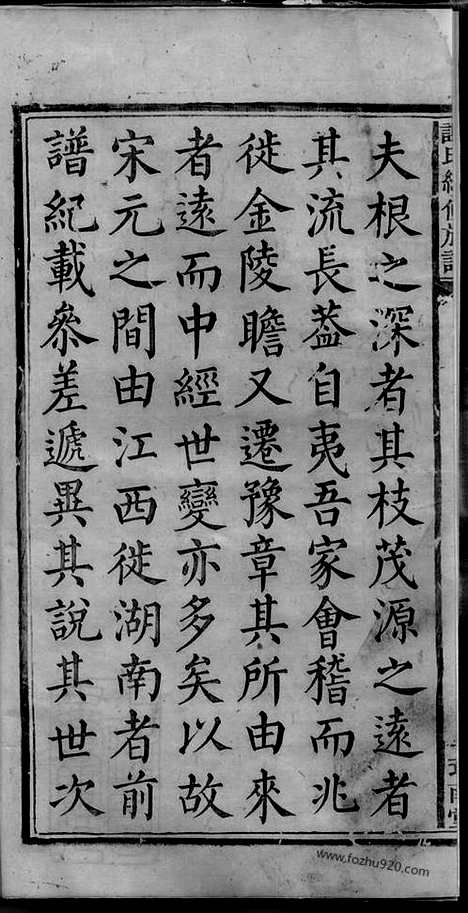 夫根之深者其枝茂源之遠者
其流長葢自夷吾家會稽而兆
徙金陵瞻又遷豫章其所由來
者遠而中經世變亦多矣以故
宋元之間由江西徙湖南者前
譜紀載叅差遞異其說其世次
氏續修族譜
www.fozhu920.com